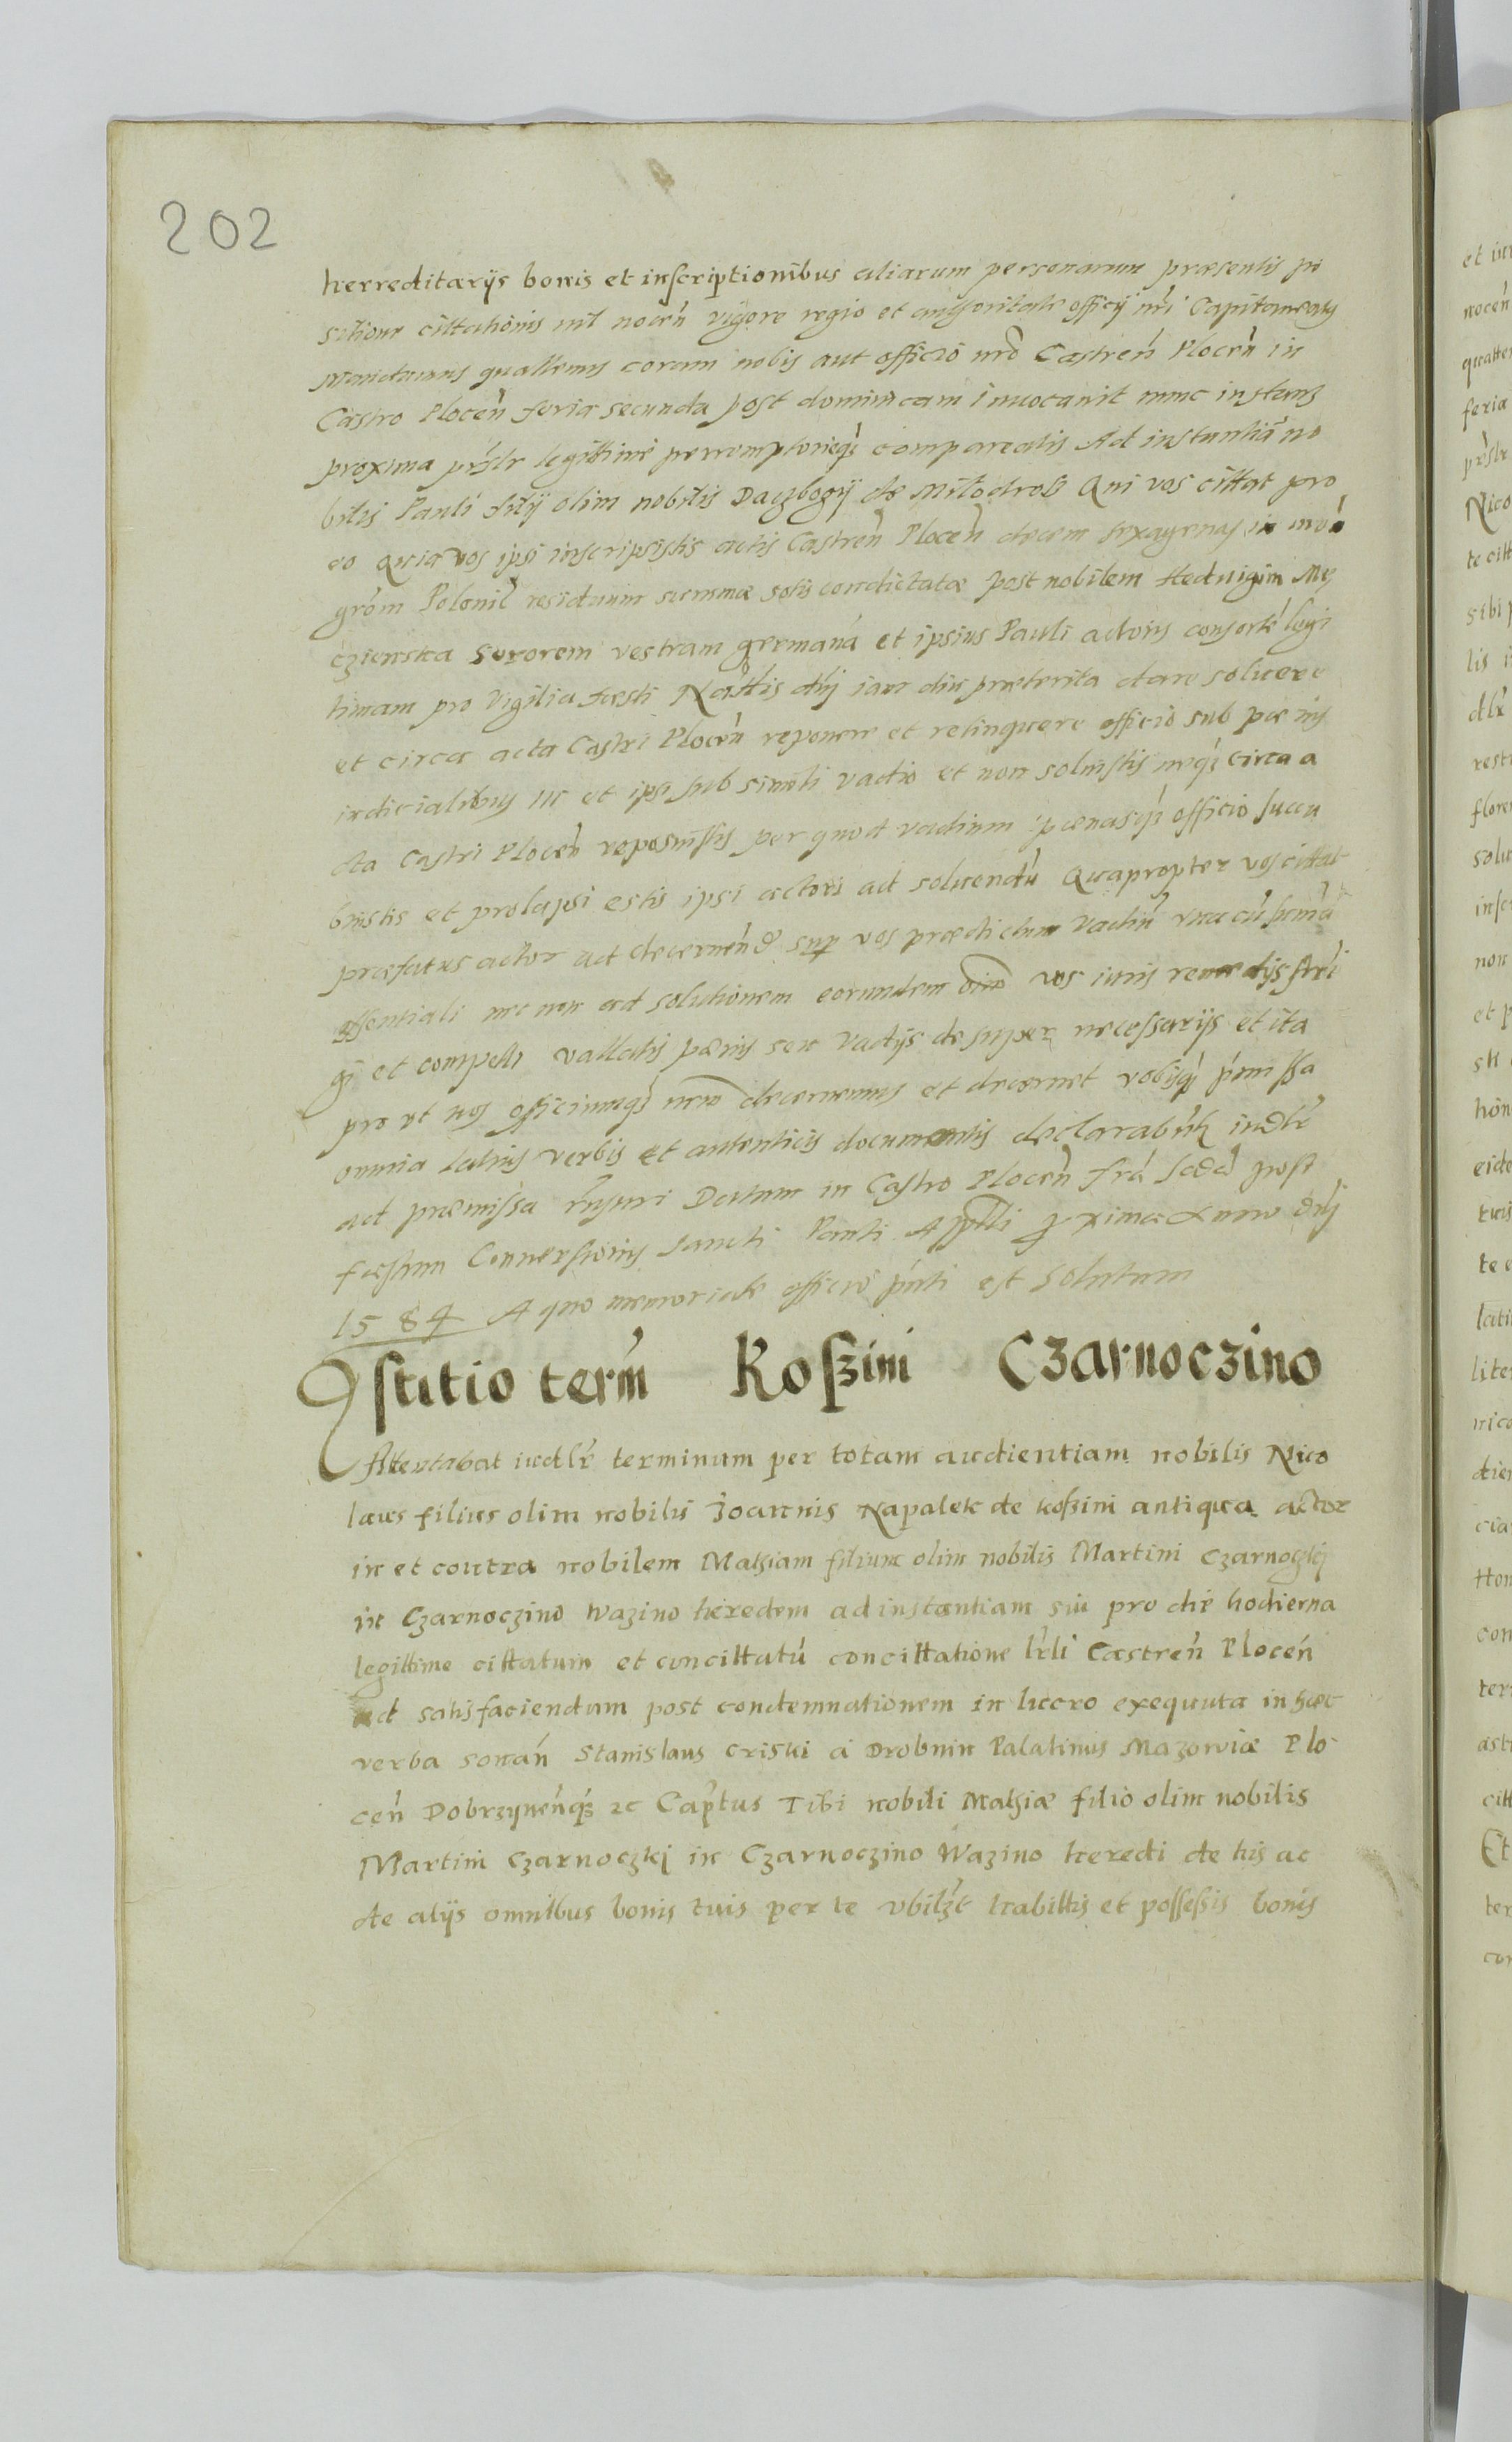 202
herreditarijs bonis et inscriptionibus aliarum personarum præsentis po
sitione cittationis nil nocen̄ vigore regio et authoritate officij nr̄i Capitanealis
Mandamus quattenus coram nobis aut officio nr̄o Castren̄ Plocen̄ in
Castro Plocen̄ feria secunda post dominicam Inuocauit nunc instans
proxima pr̄slr legittime perremptorieq3 compareatis Ad instantiā no
bilis Pauli filij olim nobilis Daczbogij de Milodroß Qui vos cittat pro
eo Quia vos ipsi inscripsistis actis Castren̄ Plocen̄ decem sexagenas in
grōm Polonil̄ residuum summæ dotis condictatæ post nobilem Heduigim My
czienska Sororem vestram germanā et ipsius Pauli actoris consortē legi
timam pro Vigilia festi Nattlis dn̄j iam diu præterita dare soluere
et circa acta Castri Plocen̄ reponere et relinquere officio sub pænis
iudicialibus uc et ipsi sub simili vadio et non soluistis neq3 circa a
cta Castri Plocen̄ reposuistis per quod vadium pænasq3 officio succu
buistis et prolapsi estis ipsi actori ad soluendū Quapropter vos cittat
præfatus actor ad decernen̄d sup vos prædictum vadiū vna cū sum̄a
essentiali nec non ad solutionem eorundem vos iuris remedijs stri
gi et compelli vallatis pænis seu vadijs desuper necessarijs et ita
pro vt nos officiumq3 nr̄m decernemus et decernet vobisq3 p̄missa
omnia latius verbis et autenticis documentis declarabūt iudlr̄
ad præmissa rn̄suri Datum in Castro Plocen̄ fr̄a scdā post
fæstum Conuersionis Sancti Pauli Aplli pxima Anno dn̄j
1584 A quo memoriale officio pn̄ti est solutum
Astitio term̄ Koßini Czarnoczino
Attentabat iudlr̄ terminum per totam audientiam nobilis Nico
laus filius olim nobilis Joannis Napalek de Koßini antiqua actor
in et contra nobilem Mathiam filium olim nobilis Martini Czarnoczkj
in Czarnoczino Wazino heredem ad instantiam sui pro die hodierna
legittime cittatum et concittatū concittatione lr̄li Castren̄ Plocen̄
ad satisfaciendum post condemnationem in lucro exequuta in hæc
verba sonān Stanislaus Criski a Drobnin Palatinus Mazowiæ Plo
cen̄ Dobrzynen̄q3 2c Cap̄tus Tibi nobili Mathiæ filio olim nobilis
Martini Czarnoczkj in Czarnoczino Wazino heredi de his ac
de alijs omnibus bonis tuis per te vbilz̄t habittis et possessis bonis